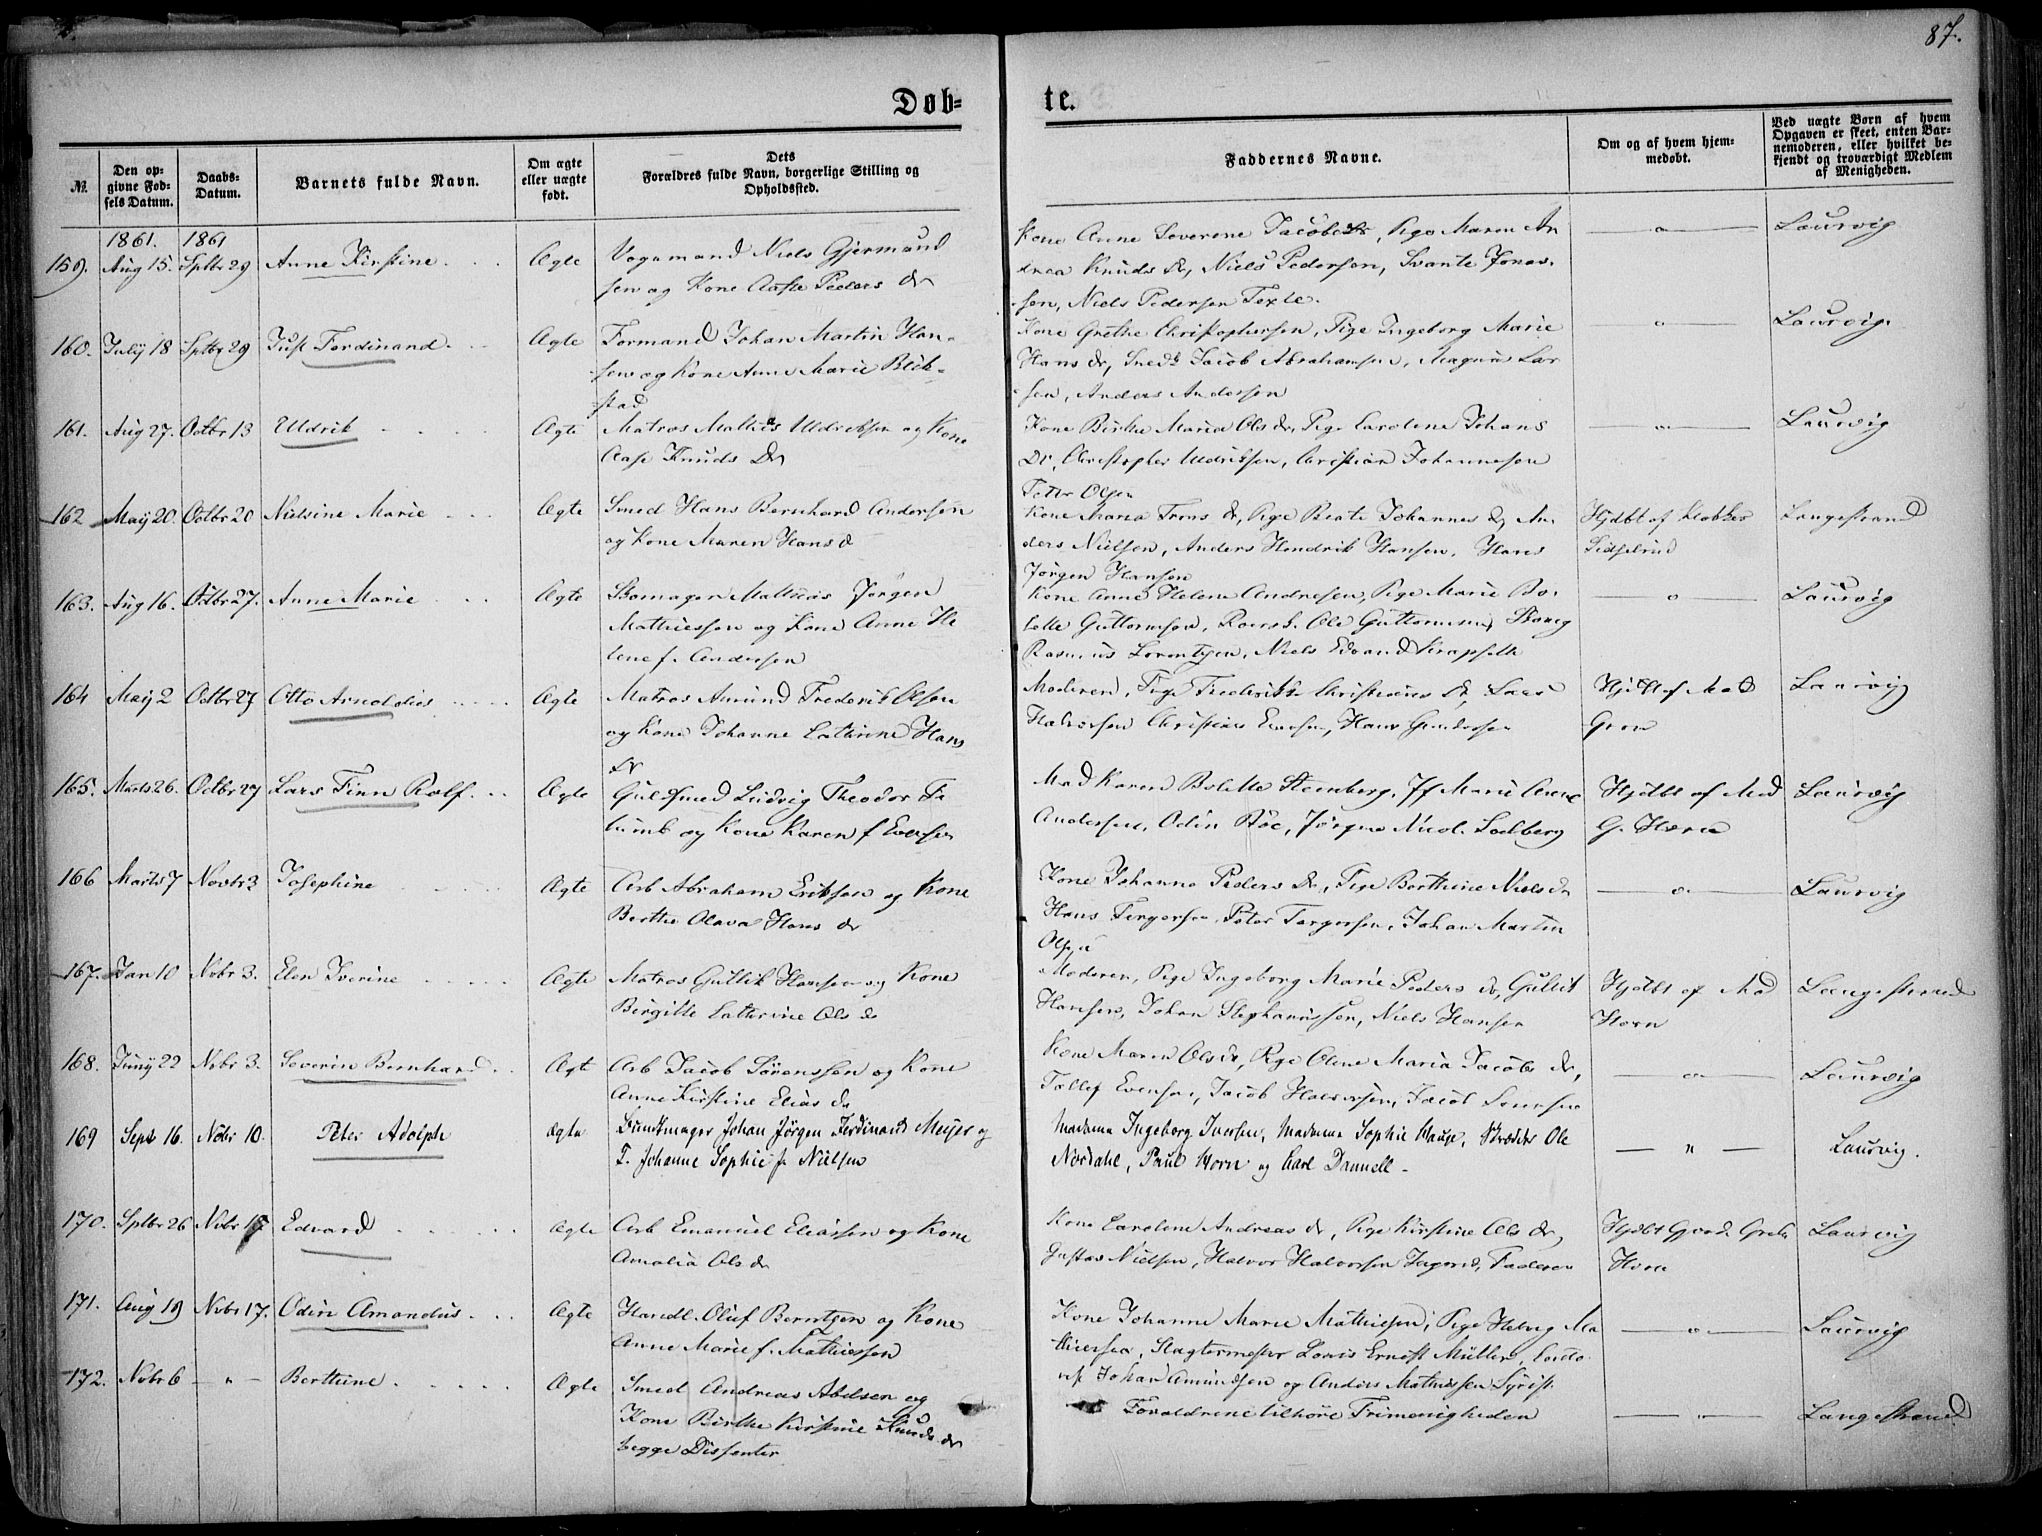 87.
Døb=
te.
№.
Den op-
givne Fød-
sels Datum.
Daabs-
Datum.
Barnets fulde Navn.
Om ægte
eller uægte
født.
Dets
Forældres fulde Navn, borgerlige Stilling og
Opholdssted.
Faddernes Navne.
Om og af hvem hjem-
medøbt.
Ved uægte Børn af hvem
Opgaven er skeet, enten Bar-
nemoderen, eller hvilket be-
kjendt og troværdigt Medlem
af Menigheden.
1861. 1861
159. Aug 15. Sptbr 29 Anne Kirstine Ægte Vognmand Niels Gjermund
sen og Kone Aase Peders Dr
Kone Anne Severine Jacobs Dr, Pige Maren An
drea Knuds Dr, Niels Pedersen, Svante Jonas-
sen, Niels Pedersen
Laurvig
160. July 18 Sptbr 29 Just Ferdinand Ægte Formand Johan Martin Han-
sen og Kone Anne Marie Blik-
stad
Kone Grethe Christophersen, Pige Ingeborg Marie
Hans Dr, Smed Jacob Abrahamsen, Magnus Lar
sen, Anders Andersen
Laurvig.
161. Aug 27. Octbr 13 Uldrik Ægte Matros Mathias Uldriksen og Kone
Aase Knuds Dr
Kone Birthe Maria Ols dr, Pige Caroline Johans
Dr, Christopher Uldriksen, Christian Johannesen
Peter Olsen
Laurvig
162 May 20. Octbr 20 Nielsine Marie Ægte Smed Hans Bernhard Andersen
og Kone Maren Hans d
Kone Maria Trons dr, Pige Beate Johannes d, An
ders Nielsen, Anders Hendrik Hansen, Hans
Jørgen Hansen
Hjdbt af Klokker
Langestrand
163. Aug 16. Octbr 27. Anne Marie Ægte Skomager Mathias Jørgen
Mathiessen og Kone Anne He
lene f. Andersen
Kone Anne Helene Andresen, Pige Marie Bo-
lette Guttormsen, Ole Guttormsen,
Rasmus Lorentzen, Niels Edvard
Laurvig
164 May 2 Octbr 27 Otto Arnoldus Ægte Matros Amund Frederik Olsen
og Kone Johanne Cathrine Hans
Dr
Moderen, Pige Frederikke Christians Dr, Lars
Halvorsen Christian Evensen, Hans Gundersen
Hjdbt af Mad
Laurvig
165. Marts 26. Octbr 27 Lars Finn Rolf. Ægte Guldsmed Ludvig Theodor
og Kone Karen f Evensen
Mad Karen Bolette Stenberg, Jf Marie Anne
Andersen, Odin Bøe, Jørgen Nicol. Sodberg
Hjdbt af Mad
G. Horn
Laurvig
166 Marts 7 Novbr 3 Josephine Ægte Arb Abraham Eriksen og Kone
Berthe Olava Hans dr
Kone Johanne Peders Dr, Pige Berthine Niels dr
Hans Tergersen, Peter Tergersen, Johan Martin
Olsen
Laurvig
167. Jan 10 Nvbr 3. Elen Iverine Ægte Matros Gullik Hansen og Kone
Birgitte Cathrine Ols dr
Moderen, Pige Ingeborg Marie Peders dr, Gullik
Hansen, Johan Stephanussen, Niels Hansen
Hjdbt af Mad
Horn
Langestrand
168. Juny 22 Nvbr 3. Severin Bernhard Ægt Arb Jacob Sørenssen og Kone
Anne Kirstine Elias dr
Kone Maren Ols dr, Pige Oline Maria Jacobs dr,
Tollef Evensen, Jacob Halvorsen, Jacob Sørensen
Laurvig
169 Sept 16. Nvbr 10. Peter Adolph Ægte Bundtmager Johan Jørgen Ferdinand Meyer og
F. Johanne Sophie f. Nielsen
Madame Ingeborg Iversen, Madame Sophie Hauge, Skrædder Ole
Nordahl, Paul Horn og Carl Dannell.
— " — Laurvig.
170. Sptbr 26 Nvbr 17 Edvard Ægte Arb Emanuel Eliassen og Kone
Amalia Ols dr
Kone Caroline Andreas dr, Pige Kirstine Ols dr,
Gustav Nielsen, Halvor Halvorsen, Faderen
Hjdbt Gjord.
Horn
Laurvig
171. Aug 19 Nvbr 17. Odin Amandus Ægte Handl. Oluf Berntzen og Kone
Anne Marie f. Mathiessen
Kone Johanne Marie Mathiesen, Pige Ma
thiesen, Slagtermester Louis Ernest Müller,
Johan Amundsen og Anders Mathiessen
Laurvig
172. Nvbr 6 — " — Berthine Ægte Smed Andreas Abelsen og
Kone Birthe Kirstine Knuds dr
begge Dissenter
Forældrene tilhøre Frimenigheden
— " — Langestrand